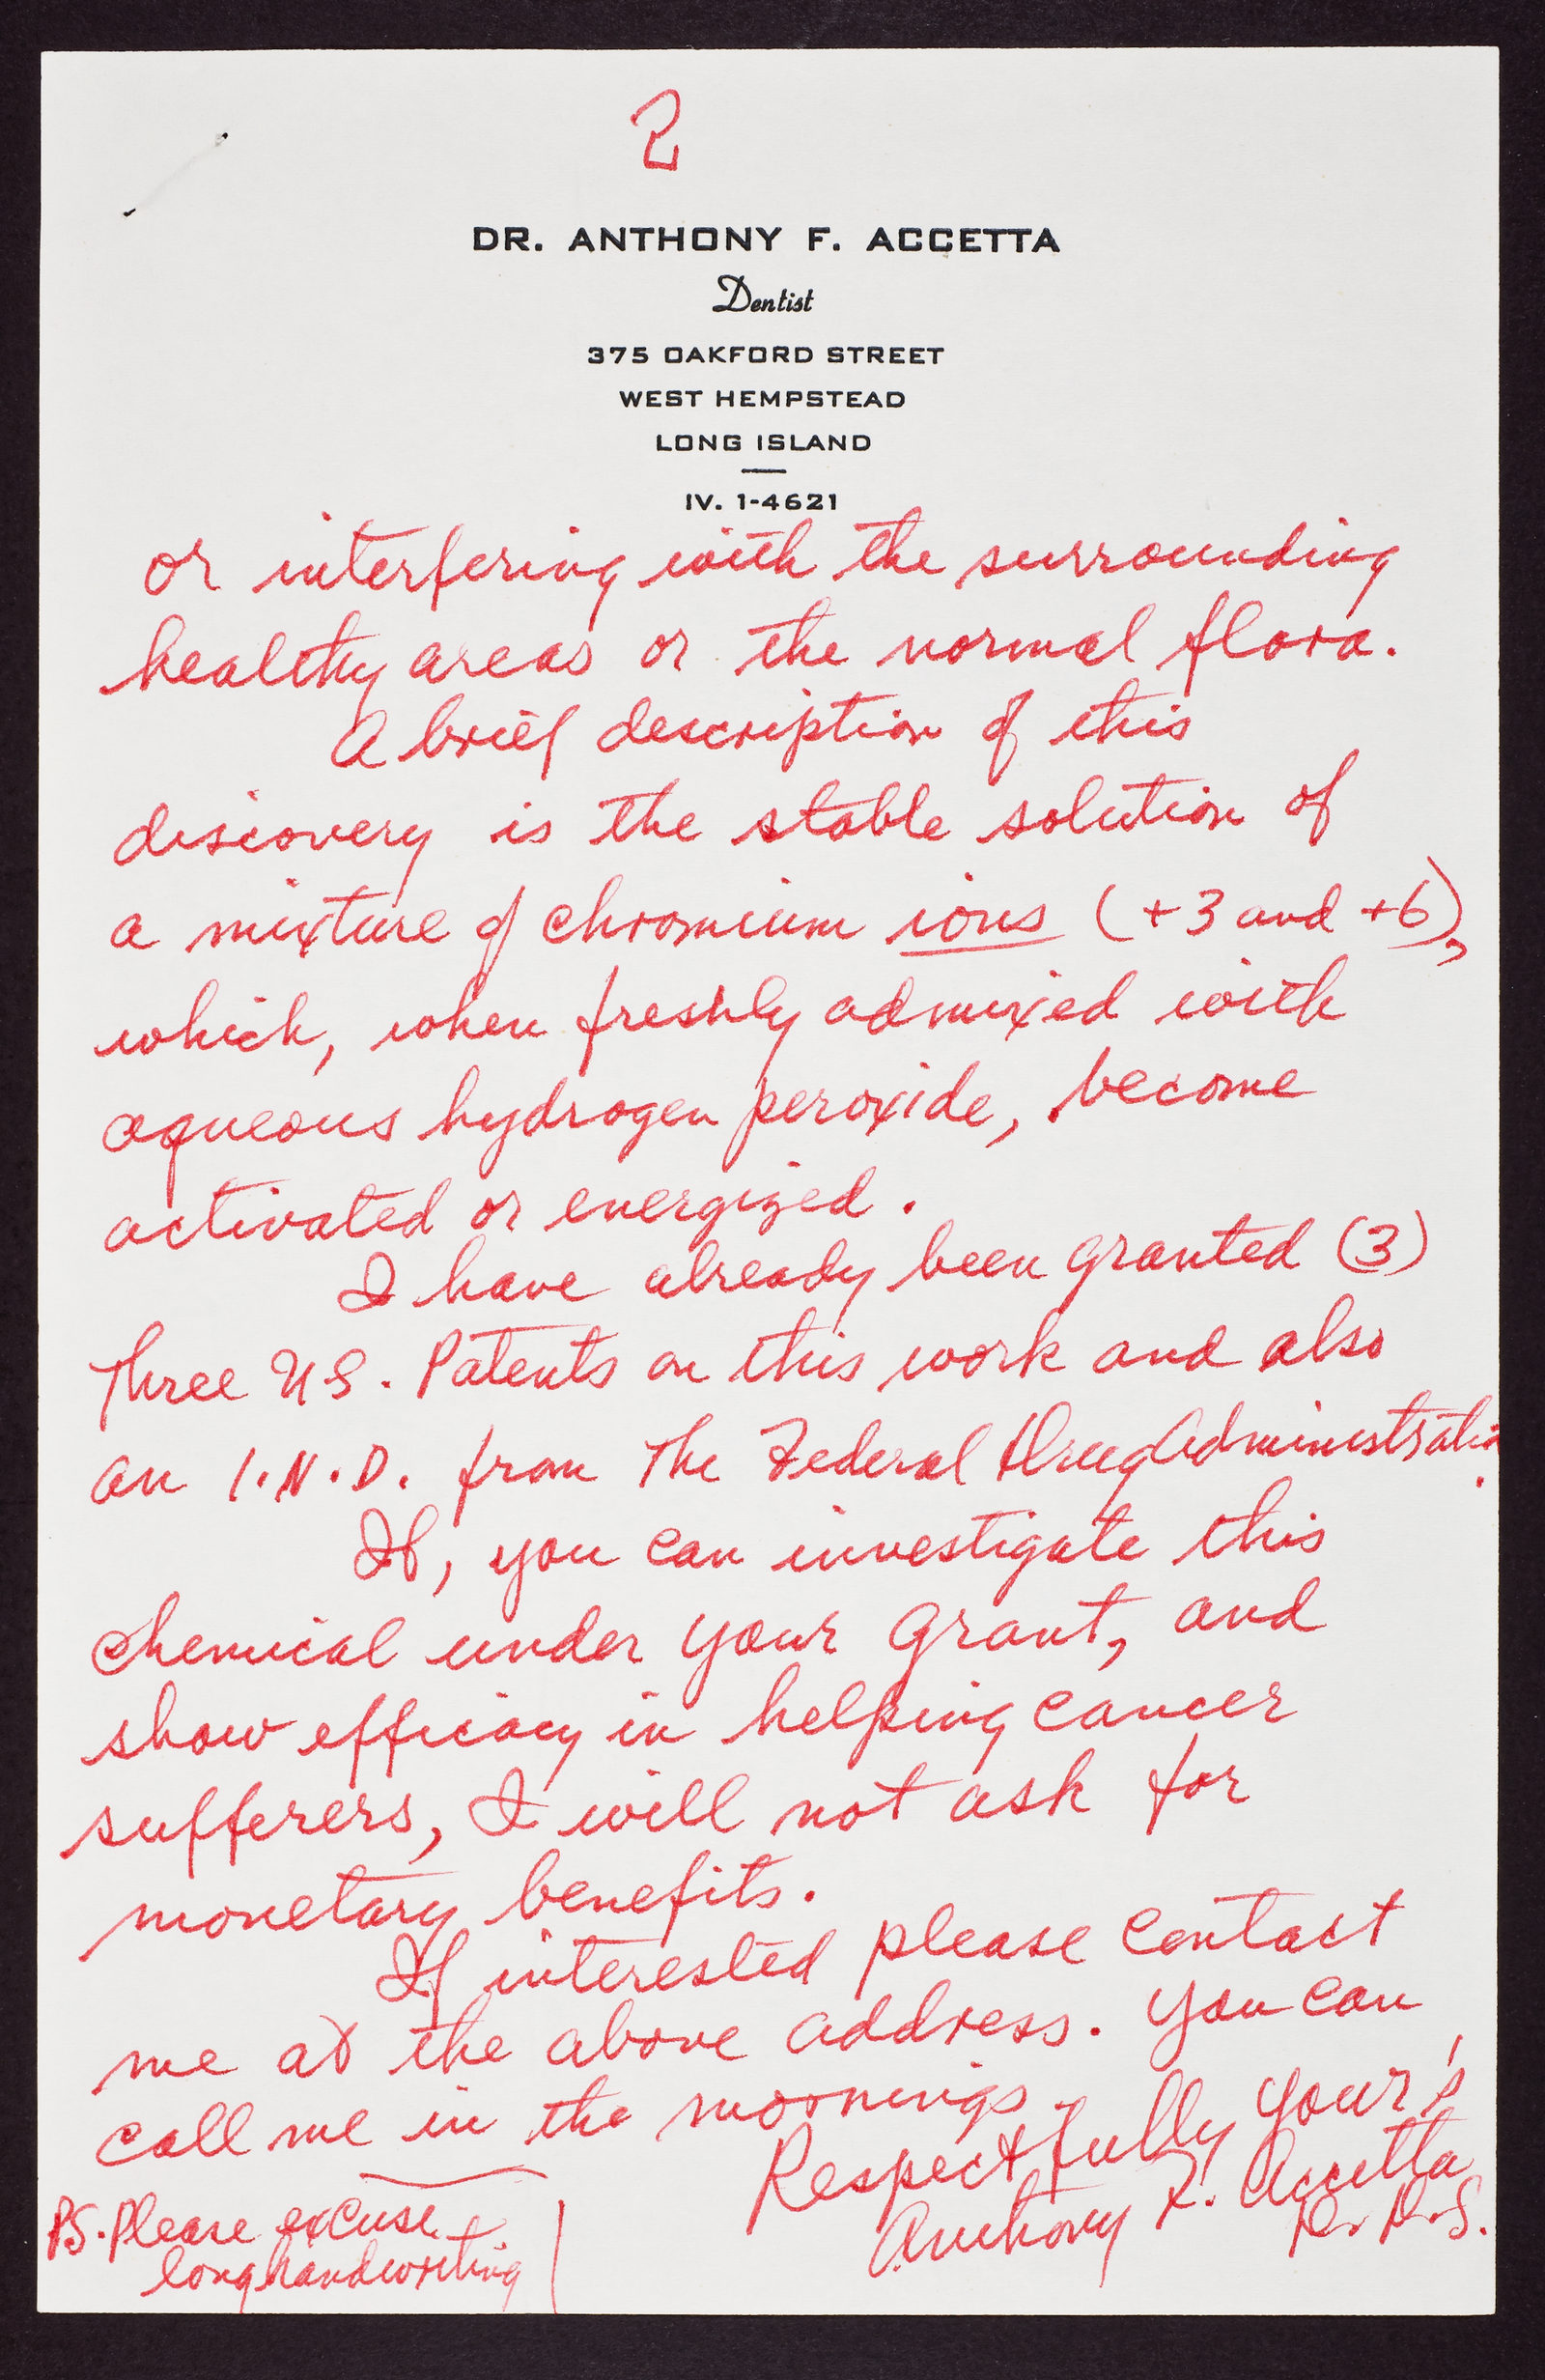 2
DR. ANTHONY F. ACCETTA
Dentist
375 OAKFORD STREET
WEST HEMPSTEAD
LONG ISLAND
IV. 1-4621
or interfering with the surrounding
healthy areas or the normal flora.
A brief description of this
discovery is the stable solution of
a mixture of chromium ions (+3 and +6),
which, when freshly admixed with
aqueous hydrogen peroxide, become
activated or energized.
I have already been granted (3)
Three U.S. Patents on this work and also
an I.N.D. from The Federal Drug Administration.
If, you can investigate this
chemical under your grant, and
show efficacy in helping cancer
sufferers, I will not ask for
monetary benefits.
If interested please contact
me at the above address. You can
call me in the mornings.
Respectfully your's,
Anthony F. Accetta
D.D.S.
PS. Please excuse
longhandwriting